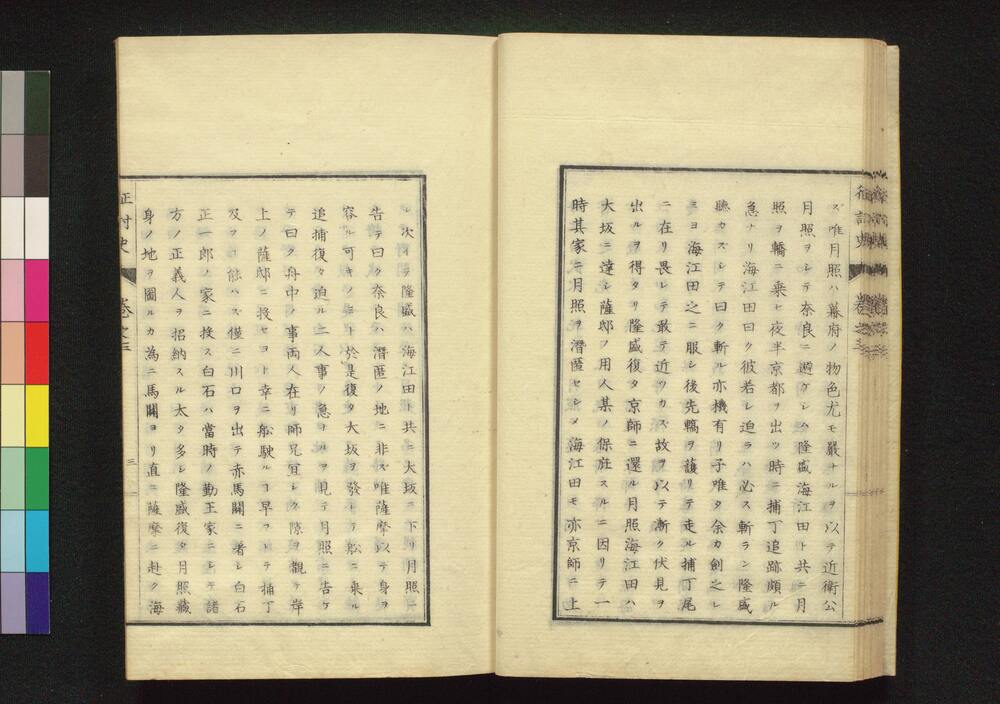 ズ唯月照ハ幕府ノ物色尤モ嚴ナルヲ以テ近衛公
月照ヲシテ奈良ニ避ケシム隆盛海江田ト共ニ月
照ヲ轎ニ乗セ夜半京都ヲ出ツ時ニ捕丁追跡頗ル
急ナリ海江田曰ク彼若シ迫ラハ必ス斬ラン隆盛
聴カスシテ曰ク斬ル亦機有リ子唯タ余カ劍之レ
ヨ海江田之ニ服シ後先轎ヲ護リテ走ル捕丁尾
ニ在リ畏レテ敢テ近ツカズ故ヲ以テ漸ク伏見ヲ
出ルヲ得タリ隆盛復タ京師ニ還ル月照海江田ハ
大坂ニ達シ薩邸ノ用人某ノ保庇スルニ因リテ一
時其家ニ月照ヲ潜匿セシメ海江田モ亦京師ニ上
レ次イテ隆盛ハ海江田ト共ニ大坂ニ下リ月照ニ
告テ曰ク奈良ハ潜匿ノ地ニ非ズ唯薩摩以テ身ヲ
容ル可キノミト於是復タ大坂ヲ發シテ舩ニ乗ル
追捕復タ迫ル二人事ノ急ナルヲ見テ月照ニ告ケ
テ曰ク舟中ノ事両人在リ師兄宜シク隙ヲ觀テ岸
上ノ薩邸ニ投セヨト幸ニ舩駛ルコ早フシテ捕丁
及フコ能ハス僅ニ川口ヲ出テ赤馬關ニ着シ白石
正一郎ノ家ニ投ス白石ハ當時ノ勤王家ニシテ諸
方ノ正義人ヲ招納スル太タ多シ隆盛復タ月照藏
身ノ地ヲ圖ルカ為ニ馬關ヨリ直ニ薩摩ニ赴ク海
征討史
卷之三
三